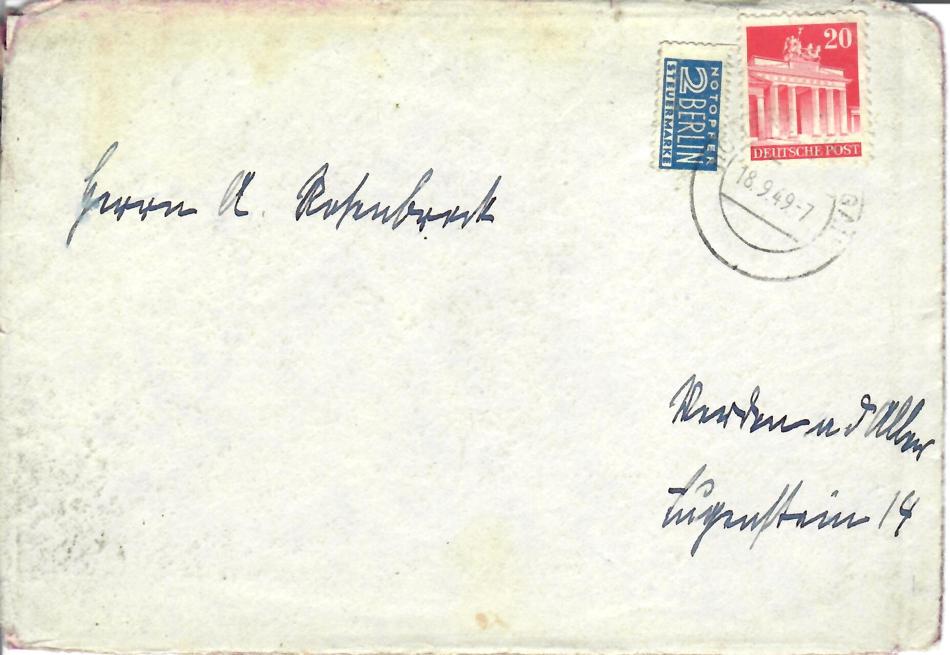 NOTOPFER
2 BERLIN
STEUERMARKE
20
DEUTSCHE POST
18.9.49-7
Herrn A. Rosenbrock
Verden a d Aller
Lugenstein 14